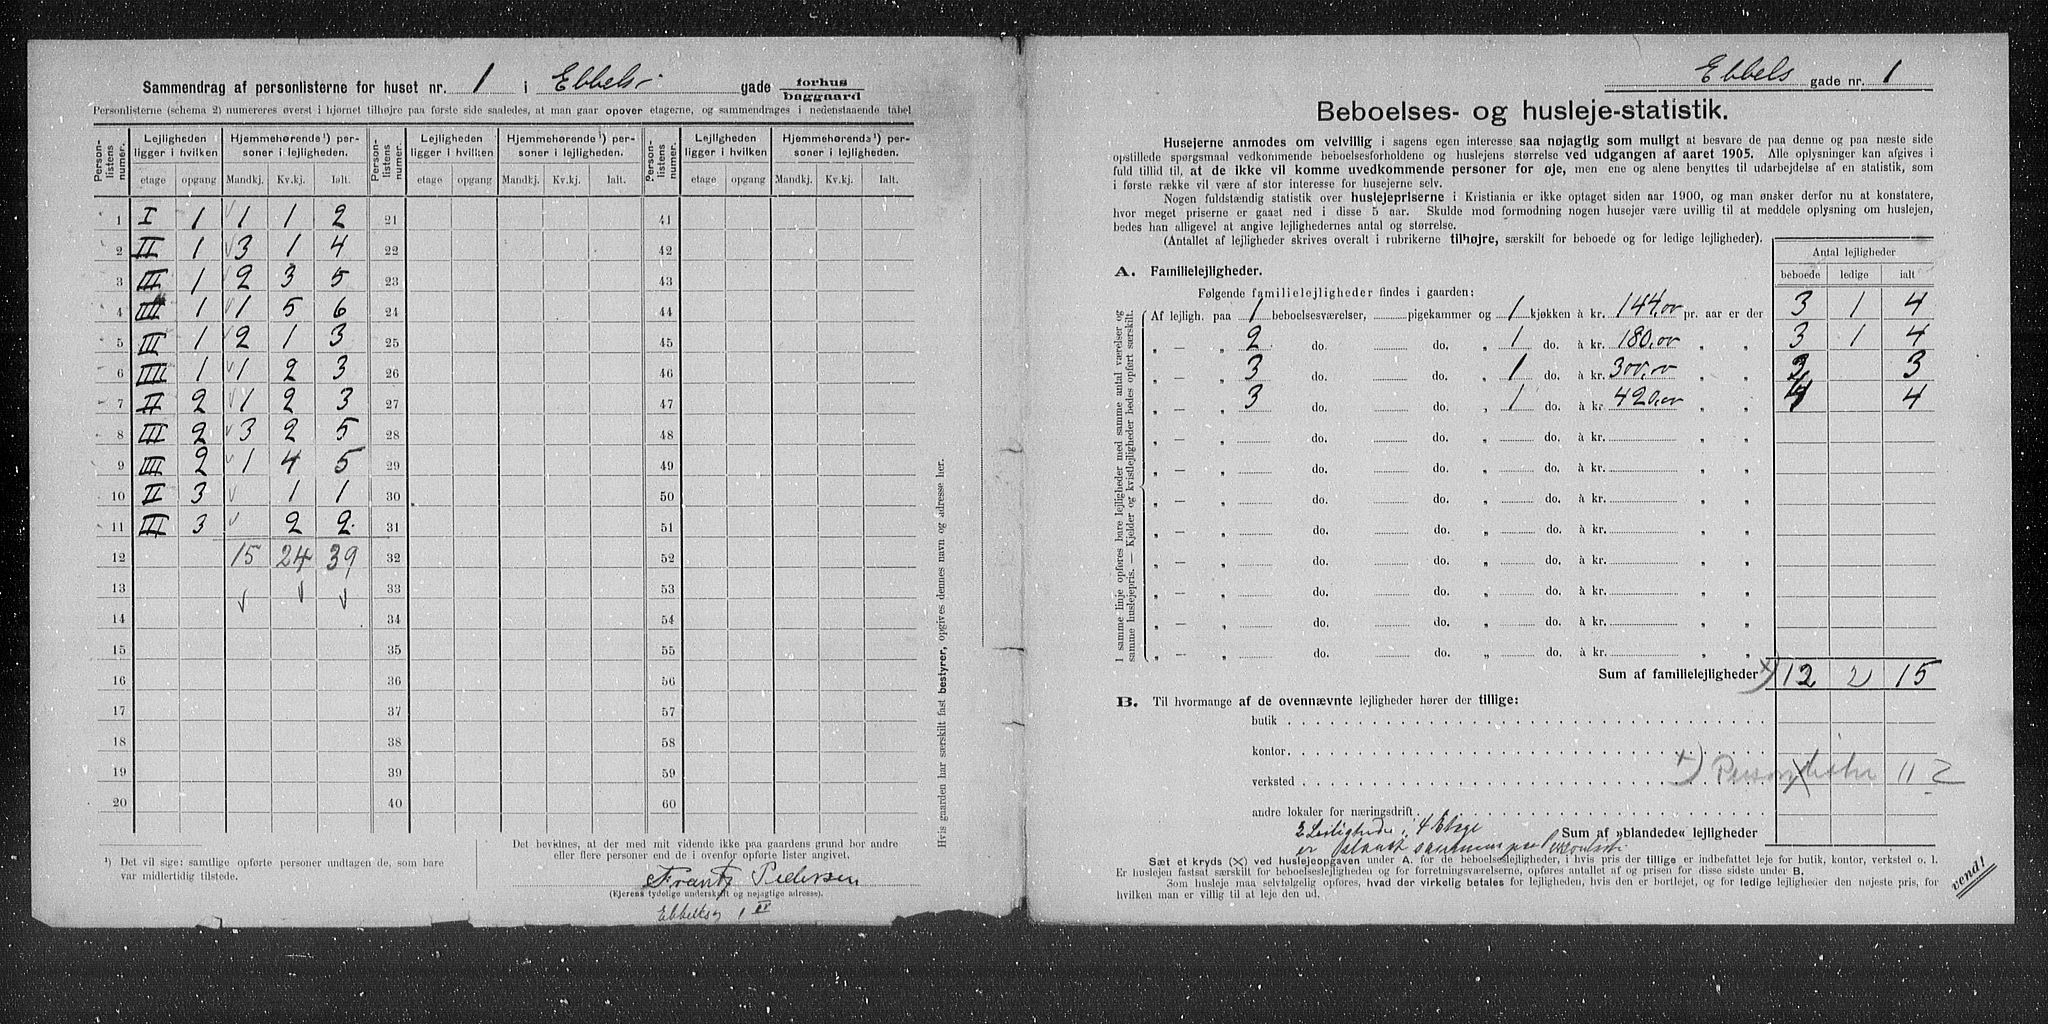 Sammendrag af personlisterne for huset nr. 1 i Ebbels gade forhus baggaard
Personlisterne (schema 2) numereres øverst i hjørnet tilhøjre paa første side saaledes, at man gaar opover etagerne, og sammendrages i nedenstaaende tabel.
Person-listens numer. Lejligheden ligger i hvilken Hjemmehørende¹) personer i lejligheden. Person-listens numer. Lejligheden ligger i hvilken Hjemmehørende¹) personer i lejligheden. Person-listens numer. Lejligheden ligger i hvilken Hjemmehørende¹) personer i lejligheden.
etage opgang Mandkj. Kv.kj. Ialt. etage opgang Mandkj. Kv.kj. Ialt. etage opgang Mandkj. Kv.kj. Ialt.
1 I 1 1 1 2 21 41
2 II 1 3 1 4 22 42
3 III 1 2 3 5 23 43
4 IIII 1 1 5 6 24 44
5 III 1 2 1 3 25 45
6 IIII 1 1 2 3 26 46
7 II 2 1 2 3 27 47
8 III 2 3 2 5 28 48
9 IIII 2 1 4 5 29 49
10 II 3 1 1 30 50
11 III 3 2 2 31 51
12 15 24 39 32 52
13 33 53
14 34 54
15 35 55
16 36 56
17 37 57
18 38 58
19 39 59
20 40 60
¹) Det vil sige: samtlige opførte personer undtagen de, som bare
var midlertidig tilstede.
Det bevidnes, at der med mit vidende ikke paa gaardens grund bor andre
eller flere personer end de i ovenfor opførte lister angivet.
Frantz Pedersen
(Ejerens tydelige underskrift og nøjagtige adresse).
Ebbelsg 1 IV
Hvis gaarden har særskilt fast bestyrer, opgives dennes navn og adresse her.
Ebbels gade nr. 1
Beboelses- og husleje-statistik.
Husejerne anmodes om velvillig i sagens egen interesse saa nøjagtig som muligt at besvare de paa denne og paa næste side
opstillede spørgsmaal vedkommende beboelsesforholdene og huslejens størrelse ved udgangen af aaret 1905. Alle oplysninger kan afgives i
fuld tillid til, at de ikke vil komme uvedkommende personer for øje, men ene og alene benyttes til udarbejdelse af en statistik, som
i første række vil være af stor interesse for husejerne selv.
Nogen fuldstændig statistik over huslejepriserne i Kristiania er ikke optaget siden aar 1900, og man ønsker derfor nu at konstatere,
hvor meget priserne er gaaet ned i disse 5 aar. Skulde mod formodning nogen husejer være uvillig til at meddele oplysning om huslejen,
bedes han alligevel at angive lejlighedernes antal og størrelse.
(Antallet af lejligheder skrives overalt i rubrikerne tilhøjre, særskilt for beboede og for ledige lejligheder).
Antal lejligheder
beboede ledige ialt
A. Familielejligheder.
Følgende familielejligheder findes i gaarden:
Af lejligh. paa 1 beboelsesværelser, pigekammer og 1 kjøkken à kr. 144,00 pr. aar er der 3 1 4
„ — „ 2 do. do. „ 1 do. à kr. 180,00 „ „ 3 1 4
„ — „ 3 do. do. „ 1 do. à kr. 300,00 „ „ 3 3
„ — „ 3 do. do. „ 1 do. à kr. 420,00 „ „ 4 4
„ — „ do. do. „ do. à kr. „ „
„ — „ do. do. „ do. à kr. „ „
„ — „ do. do. „ do. à kr. „ „
„ — „ do. do. „ do. à kr. „ „
„ — „ do. do. „ do. à kr. „ „
„ — „ do. do. „ do. à kr. „ „
„ — „ do. do. „ do. à kr. „ „
„ — „ do. do. „ do. à kr. „ „
I samme linje opføres bare lejligheder med samme antal værelser og
samme huslejepris. — Kjelder og kvistlejligheder bedes opført særskilt.
Sum af familielejligheder x) 12 2 15
B. Til hvormange af de ovennævnte lejligheder hører der tillige:
butik
kontor
verksted x) Personlister 11
andre lokaler for næringsdrift
2 Leiligheder i 4 Etage
er slaaet sammen
Sum af »blandede« lejligheder
Sæt et kryds (×) ved huslejeopgaven under A. for de beboelseslejligheder, i hvis pris der tillige er indbefattet leje for butik, kontor, verksted o. l.
Er huslejen fastsat særskilt for beboelseslejligheden og for forretningsværelserne, opføres antallet af og prisen for disse sidste under B.
Som husleje maa selvtølgelig opføres, hvad der virkelig betales for lejligheden, hvis den er bortlejet, og for ledige lejligheder den nøjeste pris, for
hvilken man er villig til at leje den ud.
vend!